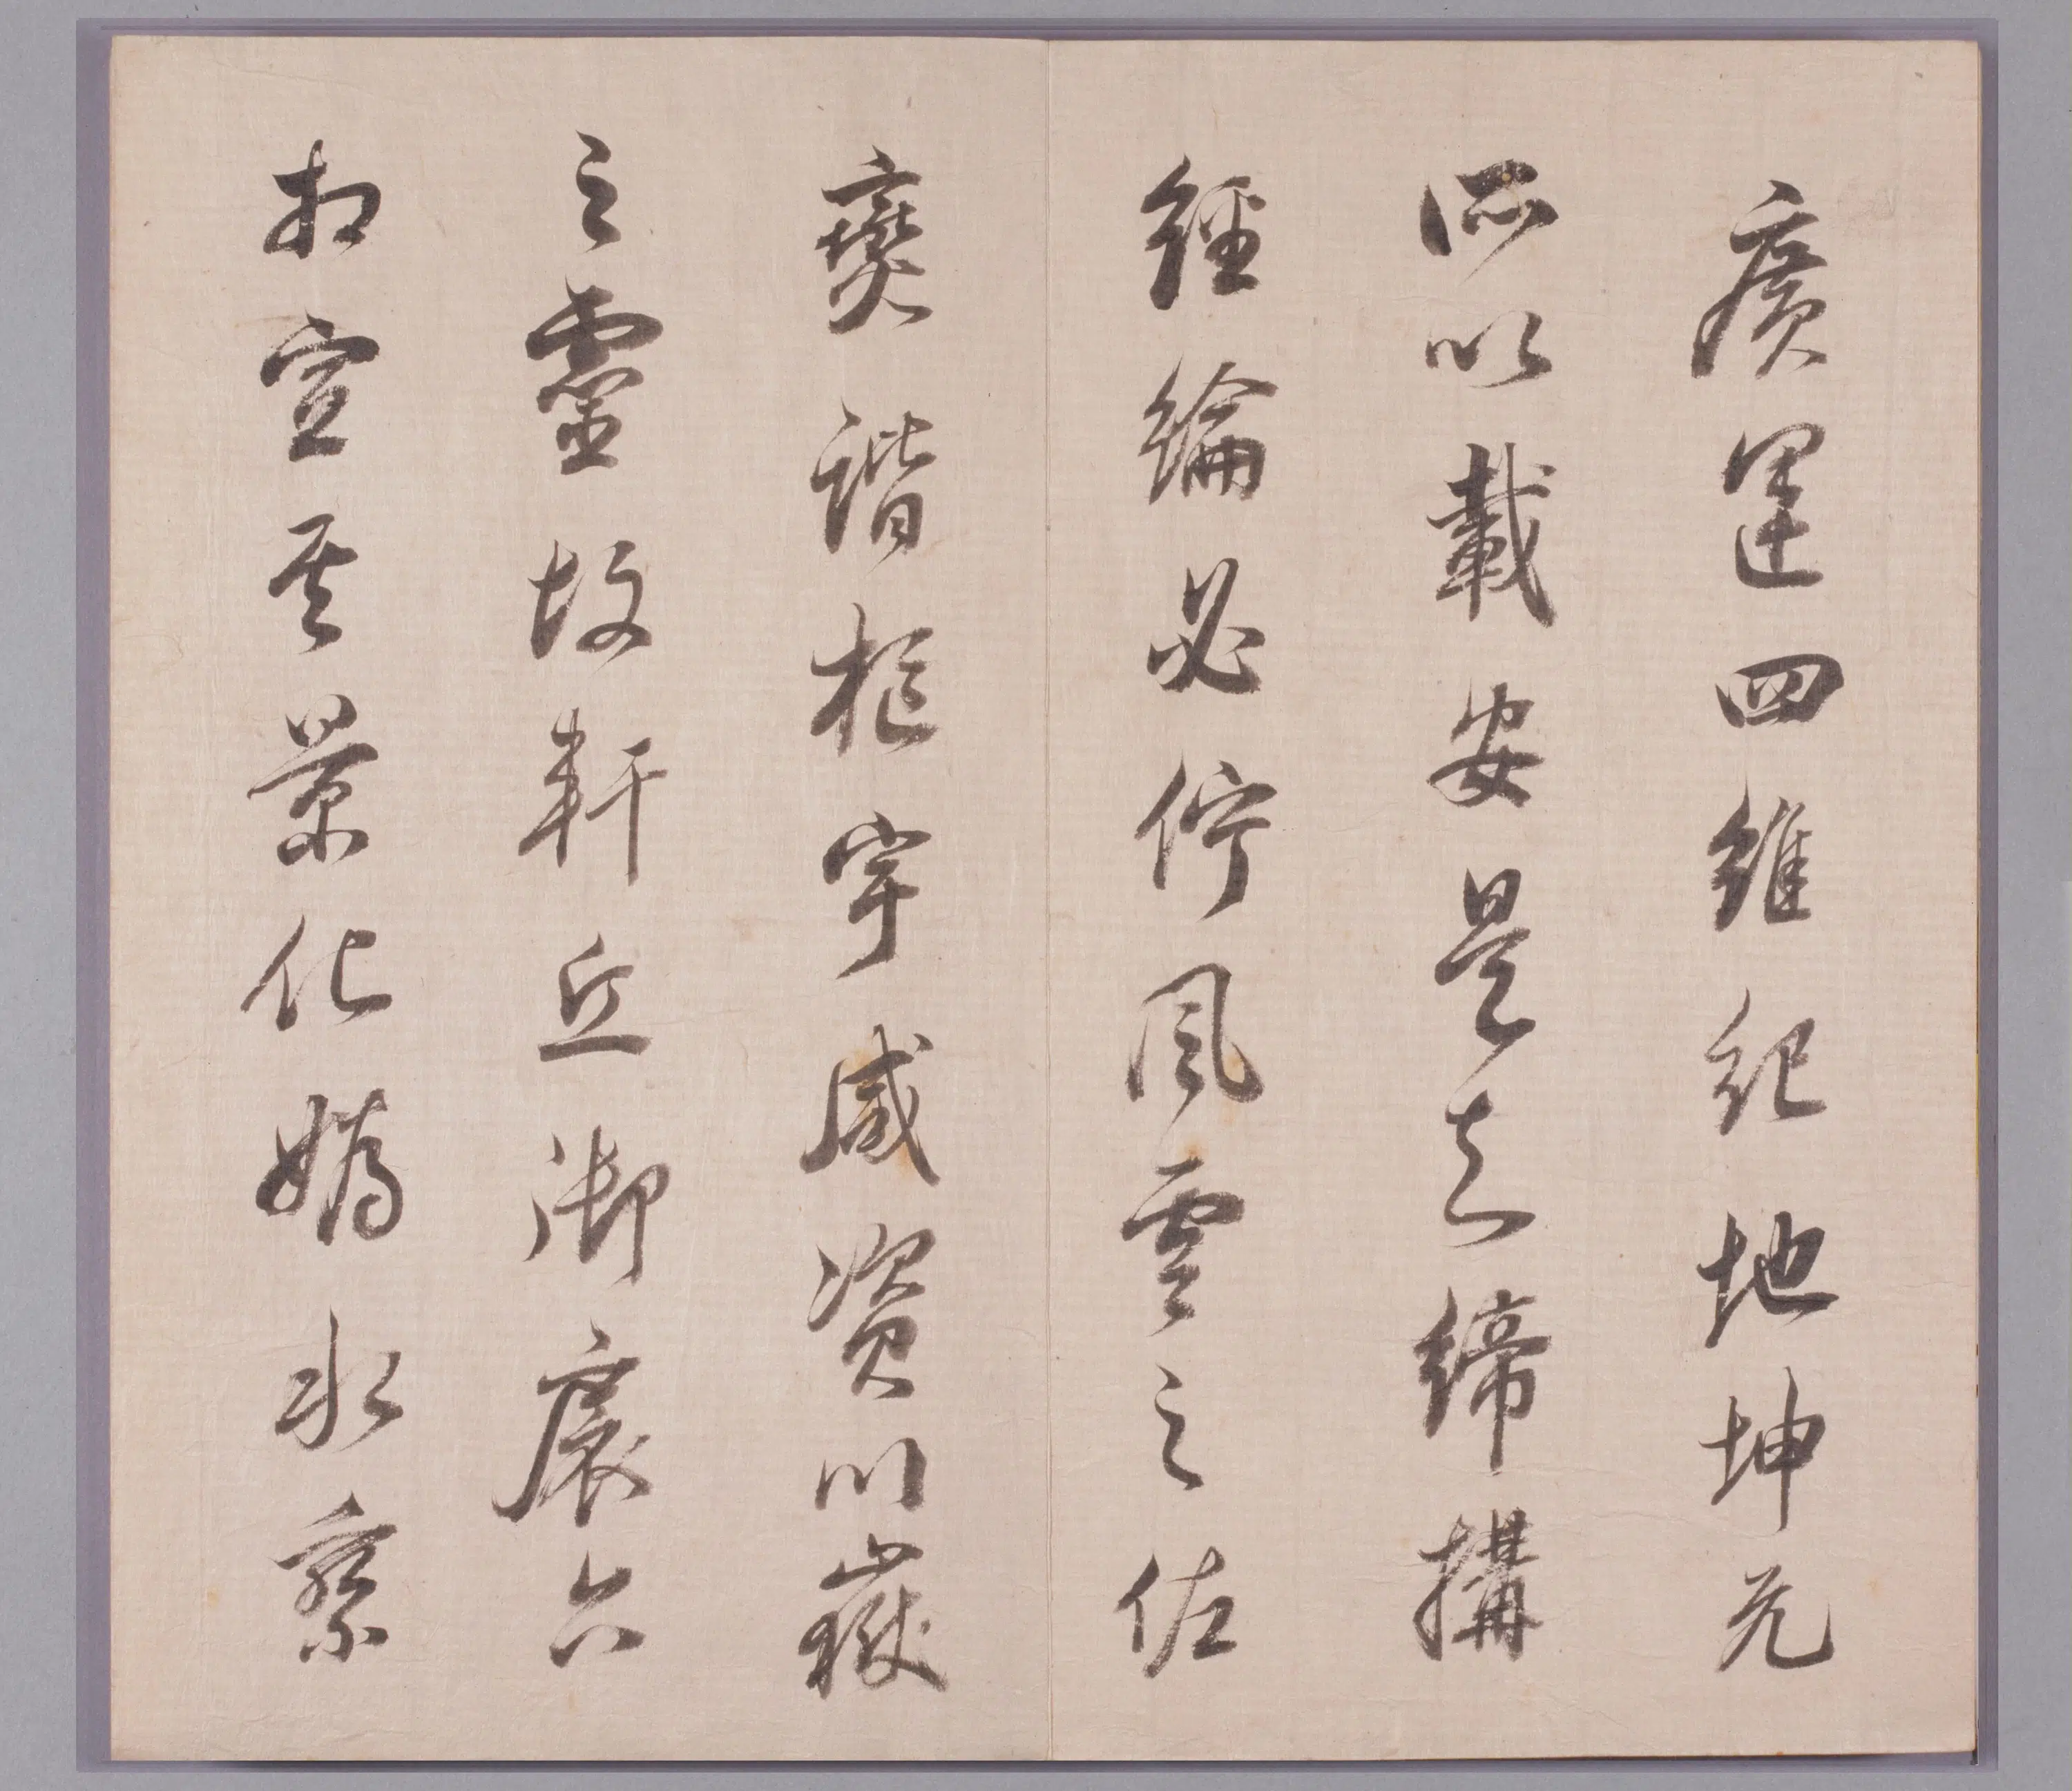 廣運四維紀地坤元
所以載安是知締搆
經綸必佇風雲之佐
燮諧樞宇咸資川嶽
之靈故軒丘御扆六
相宣其景化嬀水